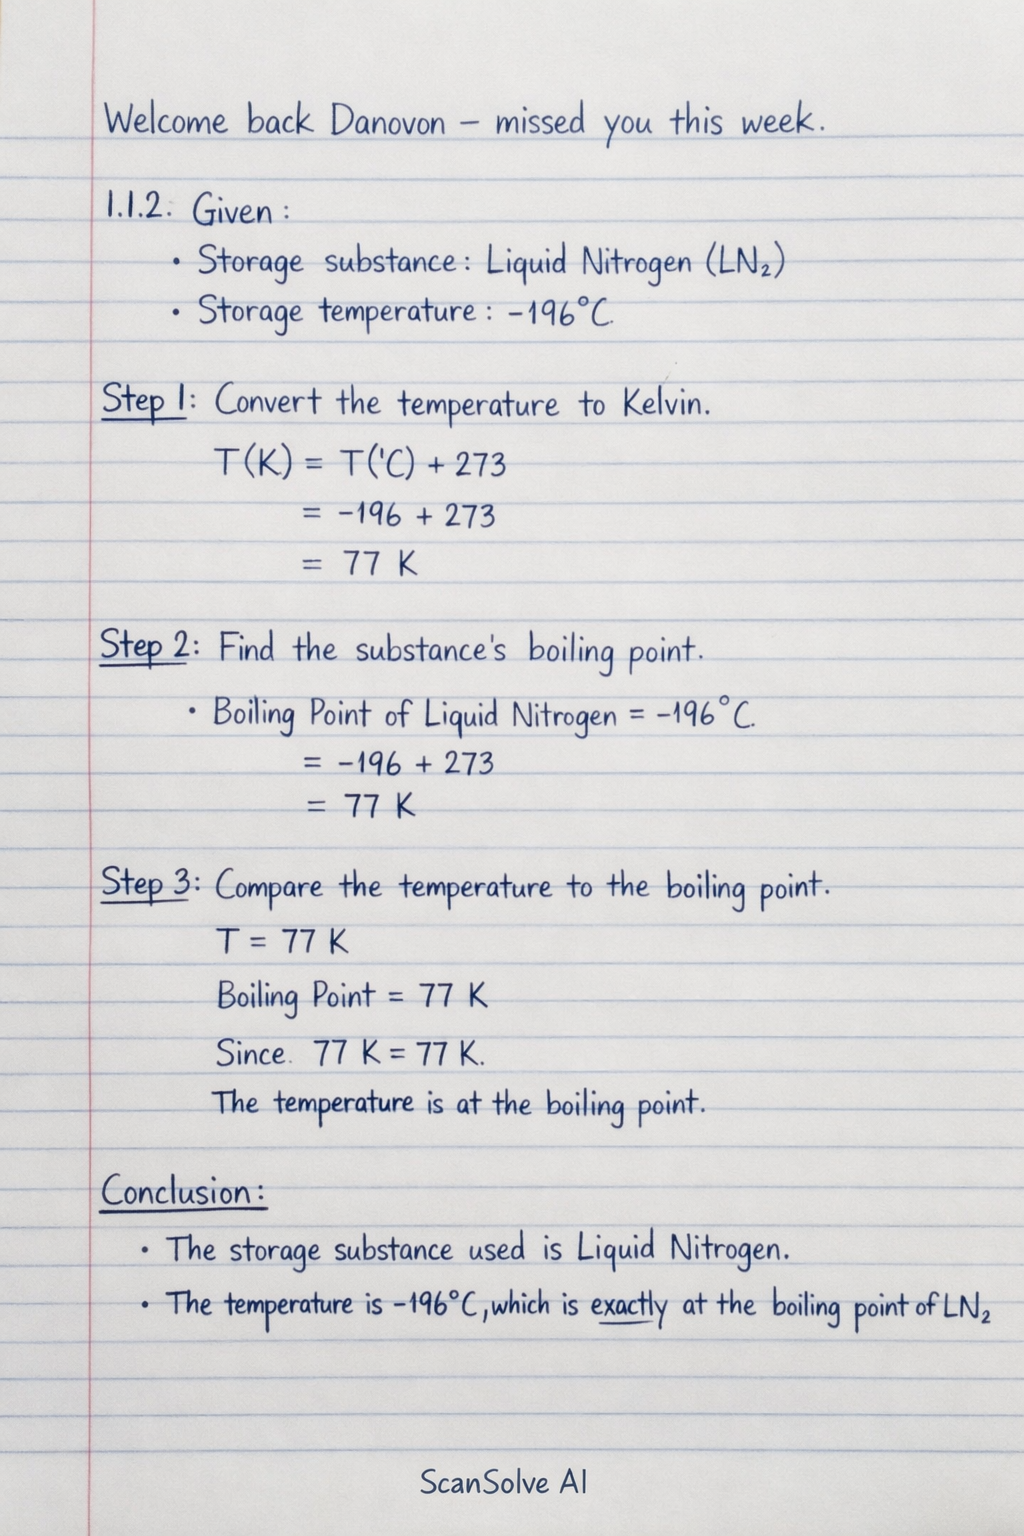 Welcome back Danovon – missed you this week.
1.1.2. Given :
• Storage substance: Liquid Nitrogen (LN₂)
• Storage temperature : -196°C.
Step 1: Convert the temperature to Kelvin.
T(K) = T('C) + 273
= -196 + 273
= 77 K
Step 2: Find the substance's boiling point.
• Boiling Point of Liquid Nitrogen = -196°C.
= -196 + 273
= 77 K
Step 3: Compare the temperature to the boiling point.
T = 77 K
Boiling Point = 77 K
Since. 77 K = 77 K.
The temperature is at the boiling point.
Conclusion:
• The storage substance used is Liquid Nitrogen.
• The temperature is -196°C, which is exactly at the boiling point of LN₂
ScanSolve AI